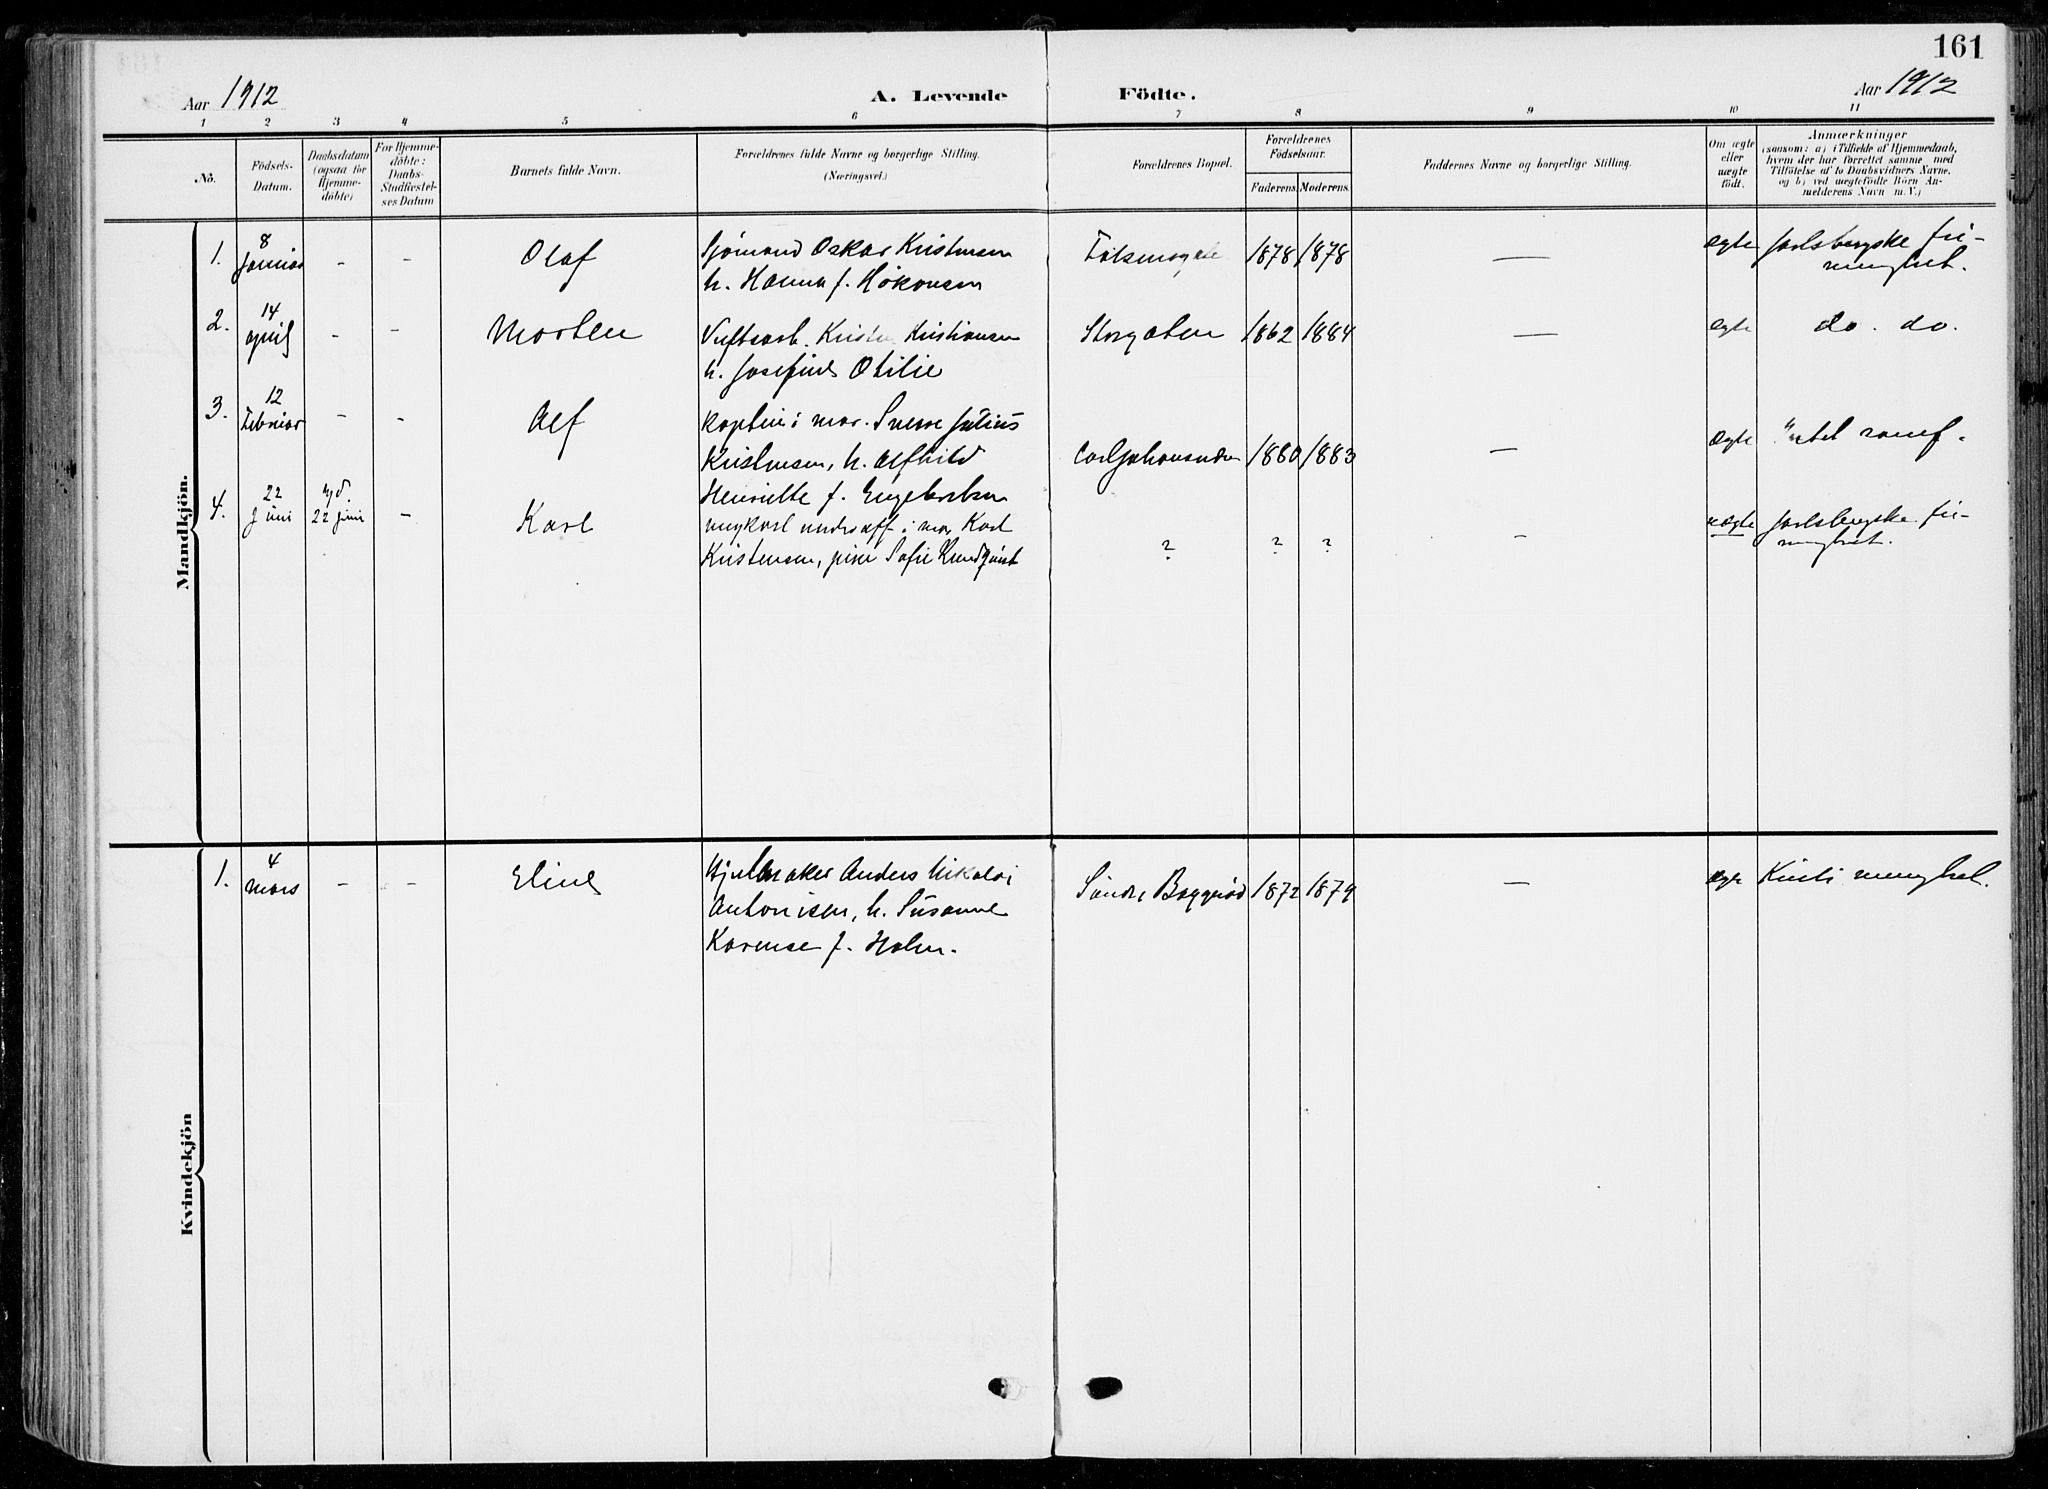 161
Aar 1912
A. Levende Födte.
Aar 1912
1 2 3 4 5 6 7 8 9 10 11
No.
Födsels-
Datum.
Daabsdatum
(ogsaa for
Hjemme-
döbte)
For Hjemme-
döbte:
Daabs-
Stadfæstel-
ses Datum
Barnets fulde Navn.
Forældrenes fulde Navne og borgerlige Stilling.
(Næringsvei.)
Forældrenes Bopæl.
Forældrenes
Födselsaar.
Faderens Moderens.
Faddernes Navne og borgerlige Stilling.
Om ægte
eller
uægte
födt.
Anmærkninger
(saasom: a) i Tilfælde af Hjemmedaab,
hvem der har forrettet samme, med
Tilföielse af to Daabsvidners Navne,
og b) ved uægtefödte Börn An-
melderens Navn m. V.)
Mandkjön.
1. 8 Januar - - Olaf
Sjömand Oskar Kristensen
h. Hanna f. Håkonsen
1878 1878 — ægte Jarlsbergske fri-
menghet.
2. 14 april - - Morten
Kristian Kristiansen
h. Josefine Otilie
Storgaten 1862 1884 — ægte do. do.
3. 12 Februar - - Alf
Kaptein i mar. Sverre Julius
Kristensen, h. Alfhild
Henriette f. Engebretsen
1880 1883 — ægte
4. 22 Juni hjd. 22 juni - Karl
underoff. i mar Karl
Kristensen, pike Sofie
? ? ? - uægte Jarlsbergske fri-
menghet.
Kvindekjön
1. 4 mars - - Eline
Hjulmaker Anders Nikolai
Antonisen, h. Susanne
Karense f. Holm.
Söndre 1872 1879 — ægte menghet.